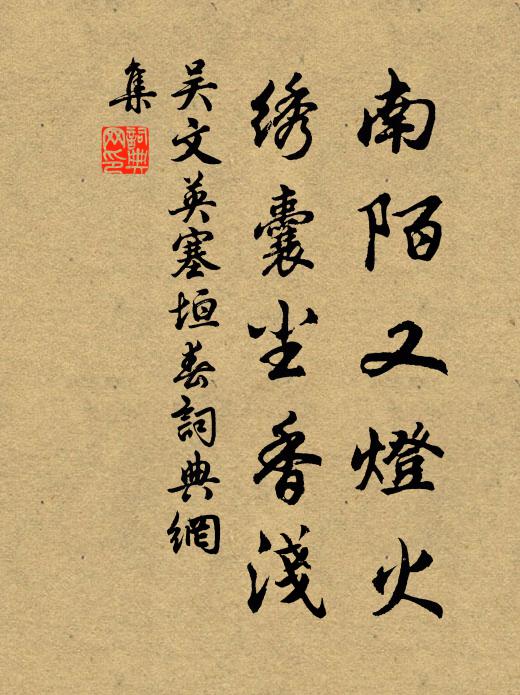 南陌又燈火
绣囊尘香淺
吴文英塞垣春詞典網
集
詞典网印